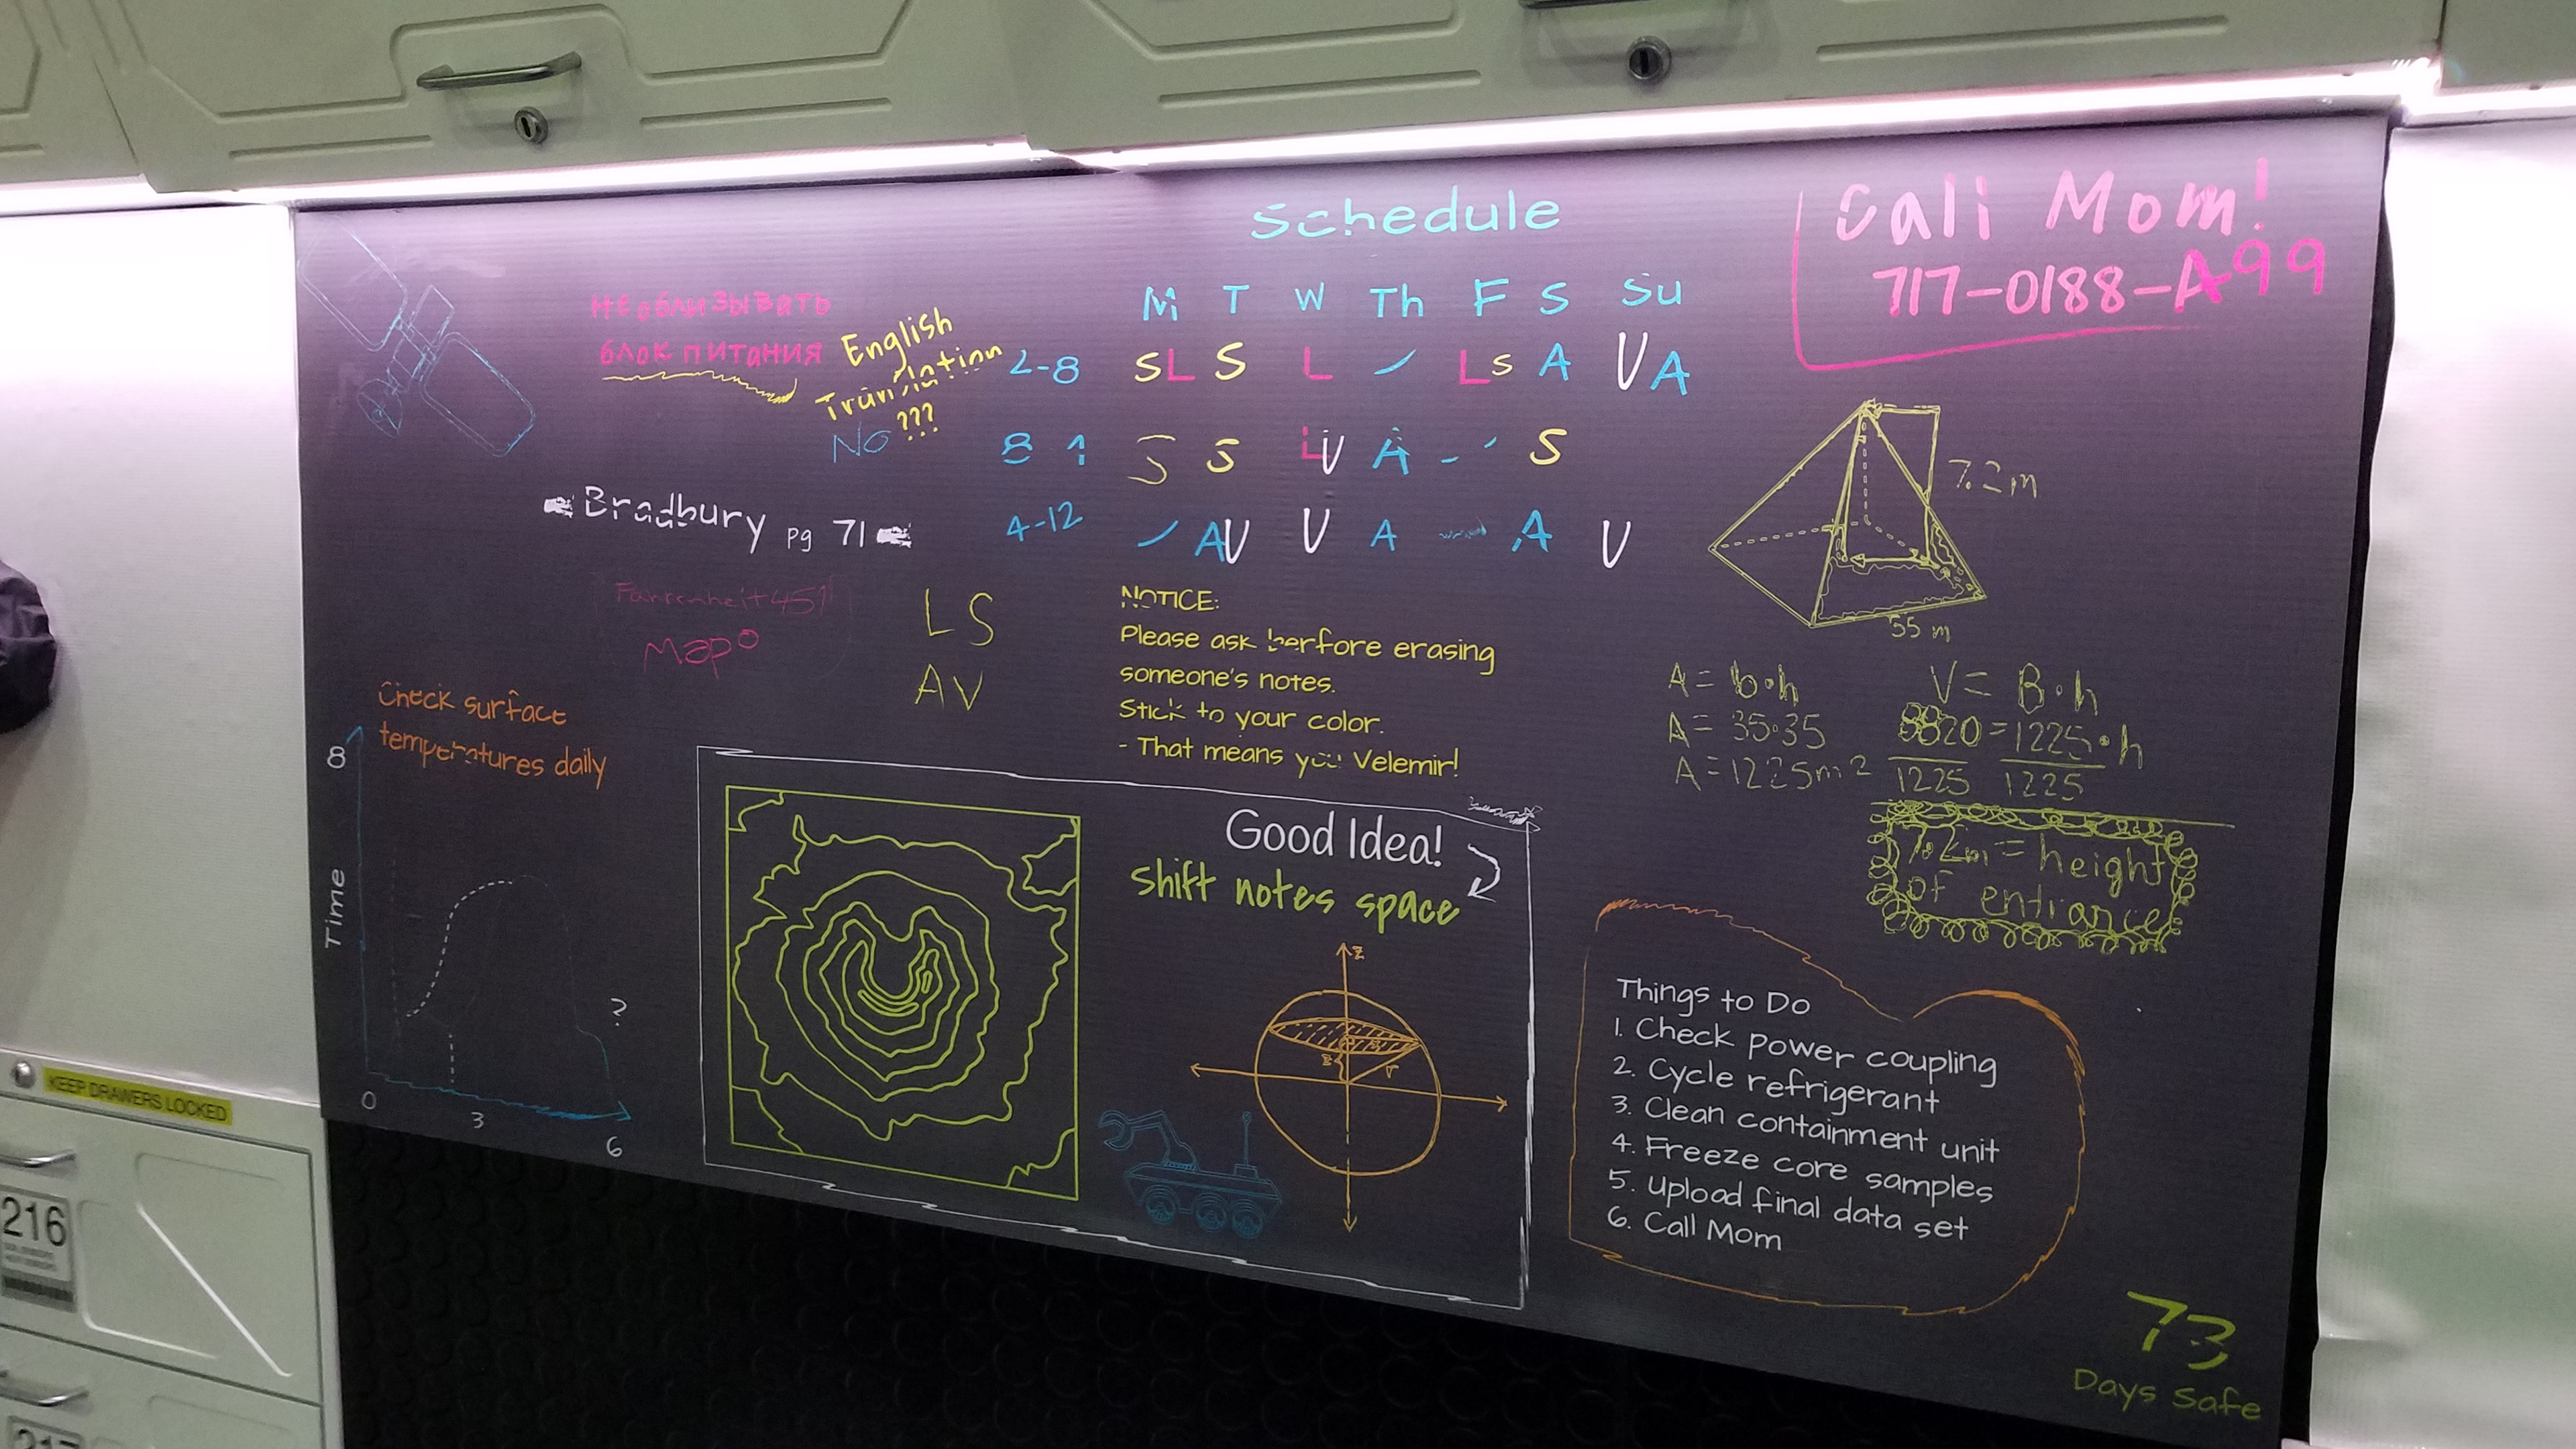 Schedule
M T W Th F S Su
2-8 SL S L Ls A VA
8 1 S S LV A - S
4-12 AV V A A V
Call Mom!
717-0188-A99
Не облизывать
блок питания
English
Translation
???
No
Bradbury pg 71
Fahrenheit 451
Map
LS
AV
NOTICE:
Please ask berfore erasing
someone's notes.
Stick to your color.
- That means you Velemir!
7.2m
35 m
A = b·h
A = 35·35
A = 1225m²
V = B·h
8820 = 1225·h
1225 1225
7.2m = height
of entrance
Check surface
temperatures daily
8
Time
0
3
6
?
Good Idea!
Shift notes space
z
z
r
Things to Do
1. Check power coupling
2. Cycle refrigerant
3. Clean containment unit
4. Freeze core samples
5. Upload final data set
6. Call Mom
73
Days Safe
KEEP DRAWERS LOCKED
216
217